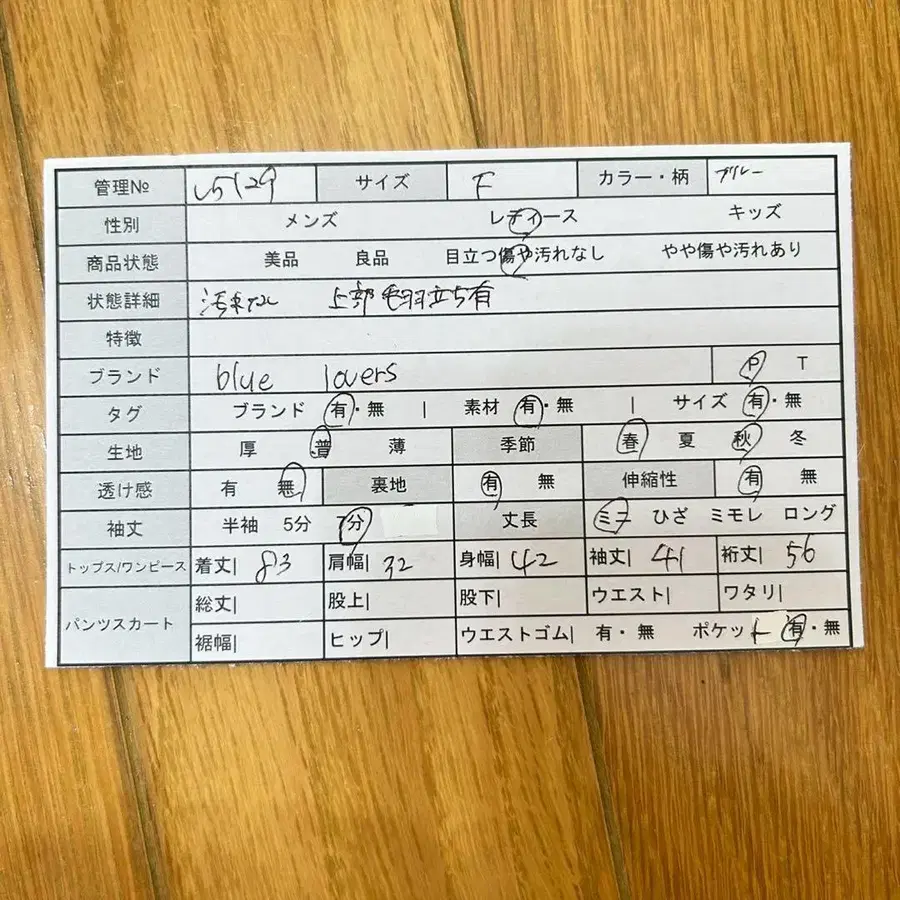 管理№ 5129 サイズ F カラー・柄 ブルー
性別 メンズ レディース キッズ
商品状態 美品 良品 目立つ傷や汚れなし やや傷や汚れあり
状態詳細 上部毛羽立ち有
特徴
ブランド blue lovers P T
タグ ブランド 有・無 | 素材 有・無 | サイズ 有・無
生地 厚 普 薄 季節 春 夏 秋 冬
透け感 有 無 裏地 有 無 伸縮性 有 無
袖丈 半袖 5分 7分 丈長 ミニ ひざ ミモレ ロング
トップス/ワンピース 着丈| 83 肩幅| 32 身幅| 42 袖丈| 41 裄丈| 56
パンツスカート 総丈| 股上| 股下| ウエスト| ワタリ|
裾幅| ヒップ| ウエストゴム| 有・無 ポケット 有・無